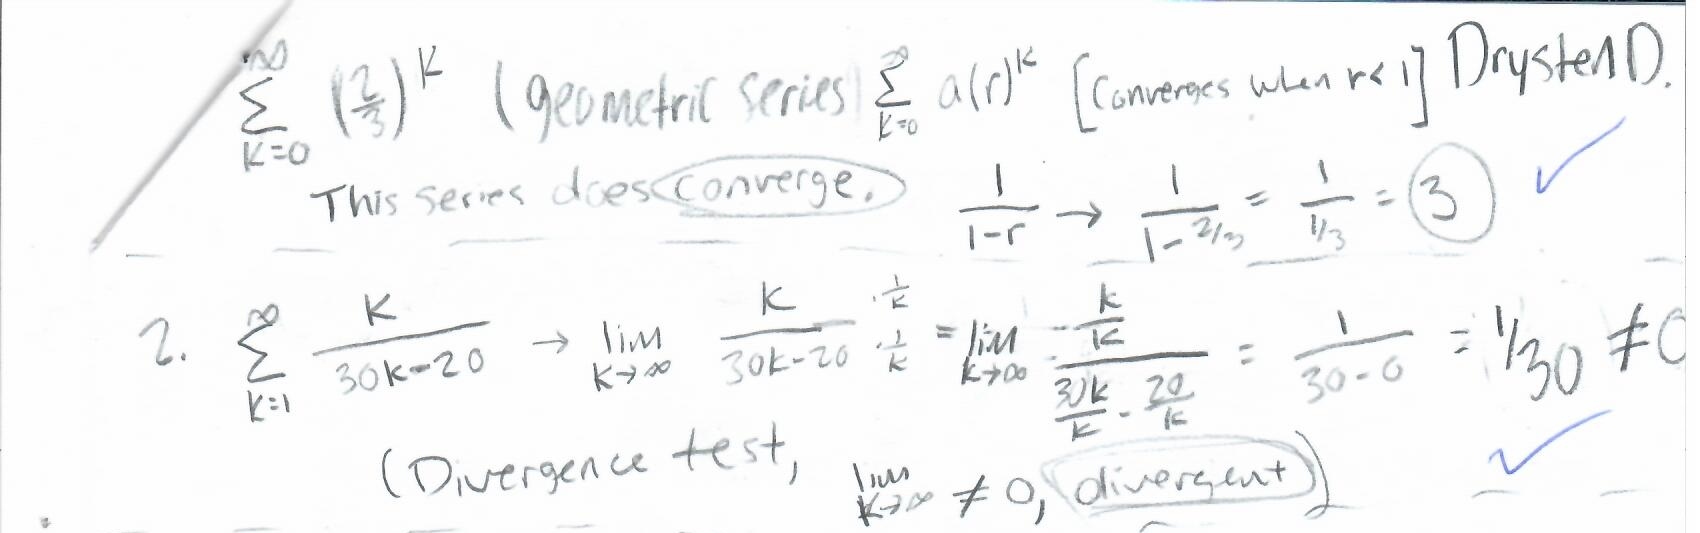 ∑_{k=0}^{∞} (2/3)^k (geometric series) ∑_{k=0}^{∞} a(r)^k [Converges when r< 1] Drysten D.
This series does converge. 1/(1-r) → 1/(1-2/3) = 1/(1/3) = 3
2. ∑_{k=1}^{∞} k/(30k-20) → lim_{k→∞} k/(30k-20) · (1/k)/(1/k) = lim_{k→∞} (k/k)/(30k/k - 20/k) = 1/(30-0) = 1/30 ≠ 0
(Divergence test, lim_{k→∞} ≠ 0, divergent)